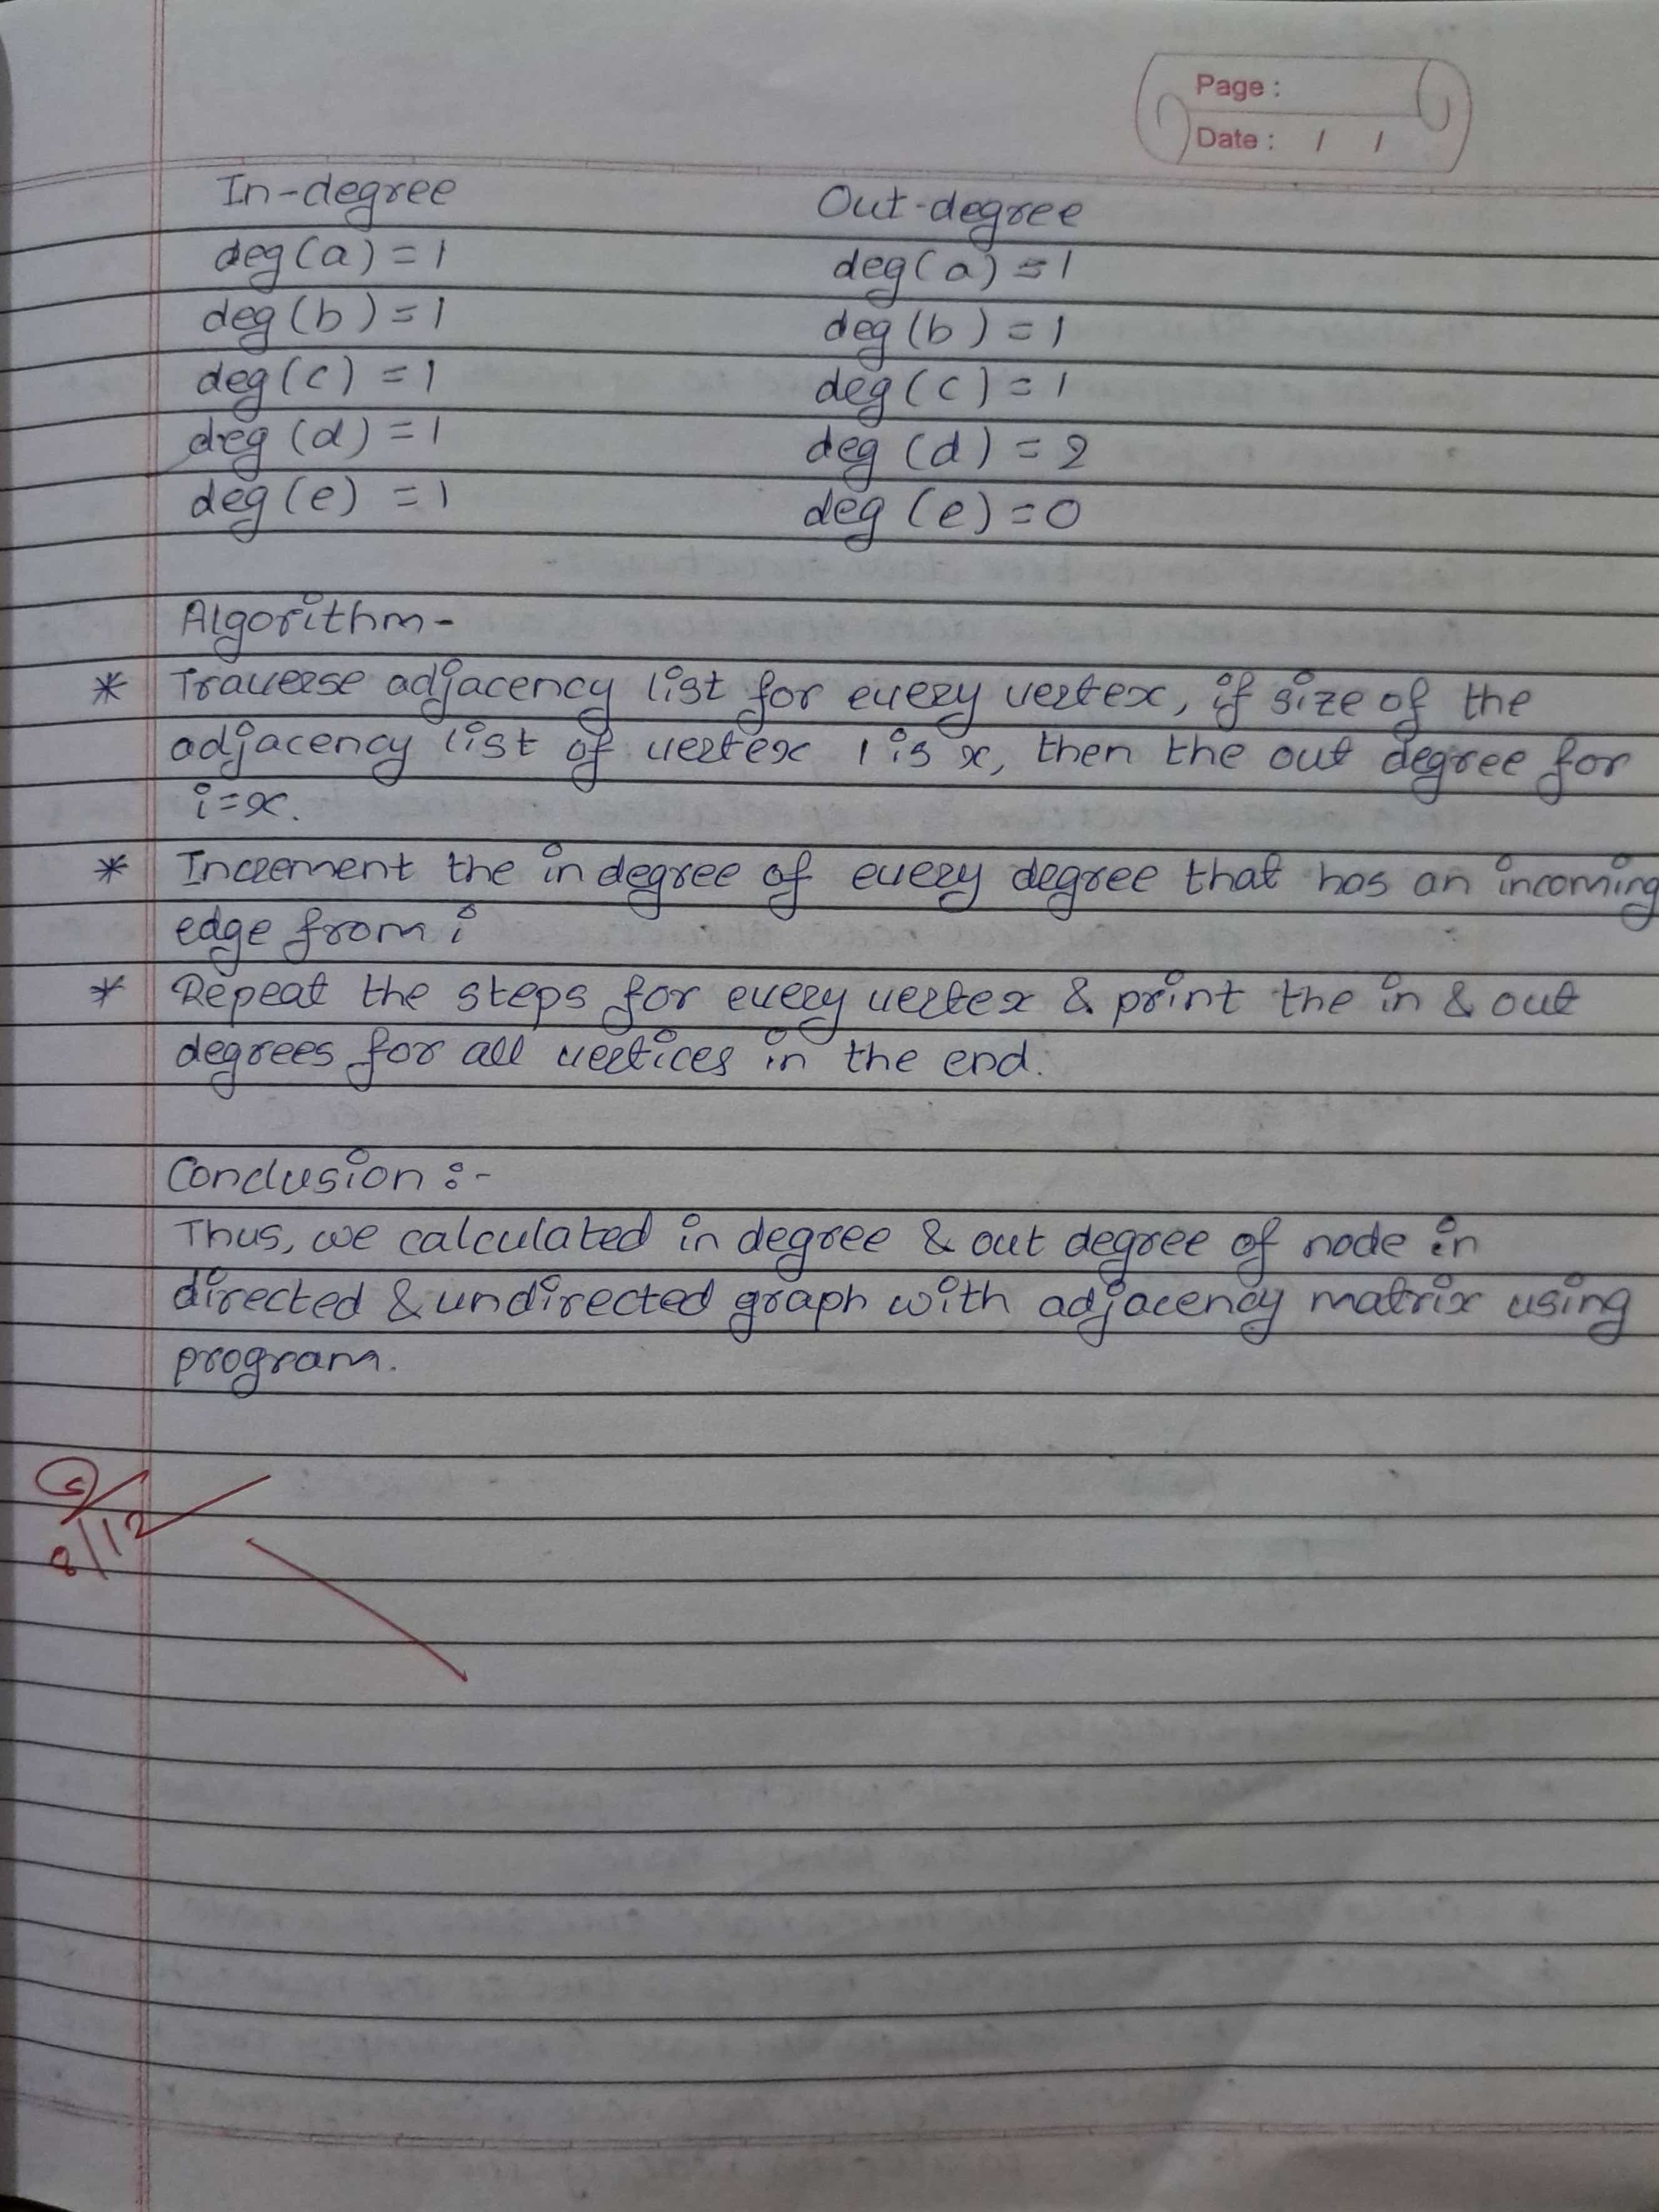 Page :
Date : / /
In-degree Out-degree
deg(a) = 1 deg(a) = 1
deg(b) = 1 deg(b) = 1
deg(c) = 1 deg(c) = 1
deg(d) = 1 deg(d) = 2
deg(e) = 1 deg(e) = 0
Algorithm-
* Traverse adjacency list for every vertex, if size of the
adjacency list of vertex i is x, then the out degree for
i=x.
* Increment the in degree of every degree that has an incoming
edge from i
* Repeat the steps for every vertex & print the in & out
degrees for all vertices in the end.
Conclusion :-
Thus, we calculated in degree & out degree of node in
directed & undirected graph with adjacency matrix using
program.
8/12